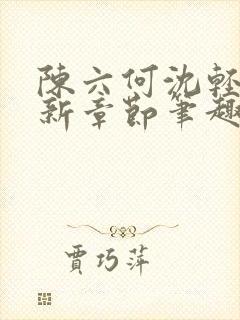 陳六何沈輕
新章節筆趣
賈巧萍